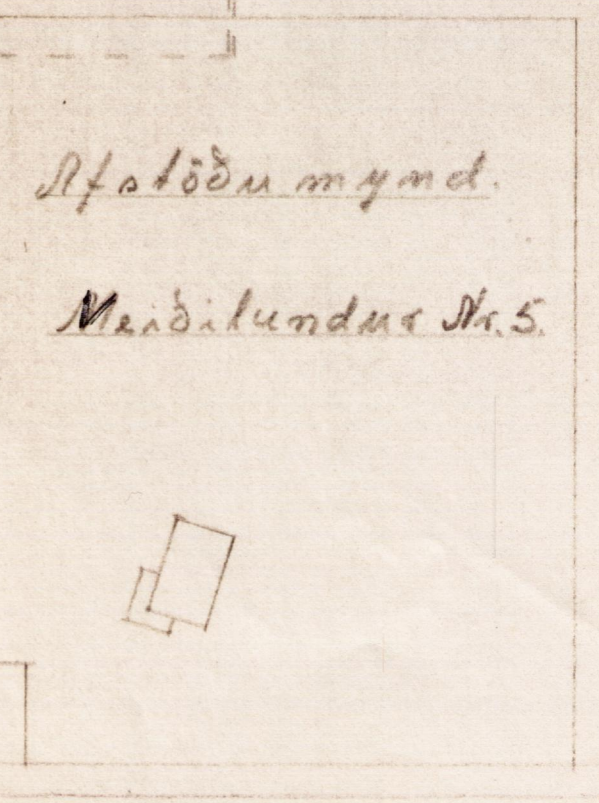 Afstöðu mynd.
Meiðilundur Nr. 5.